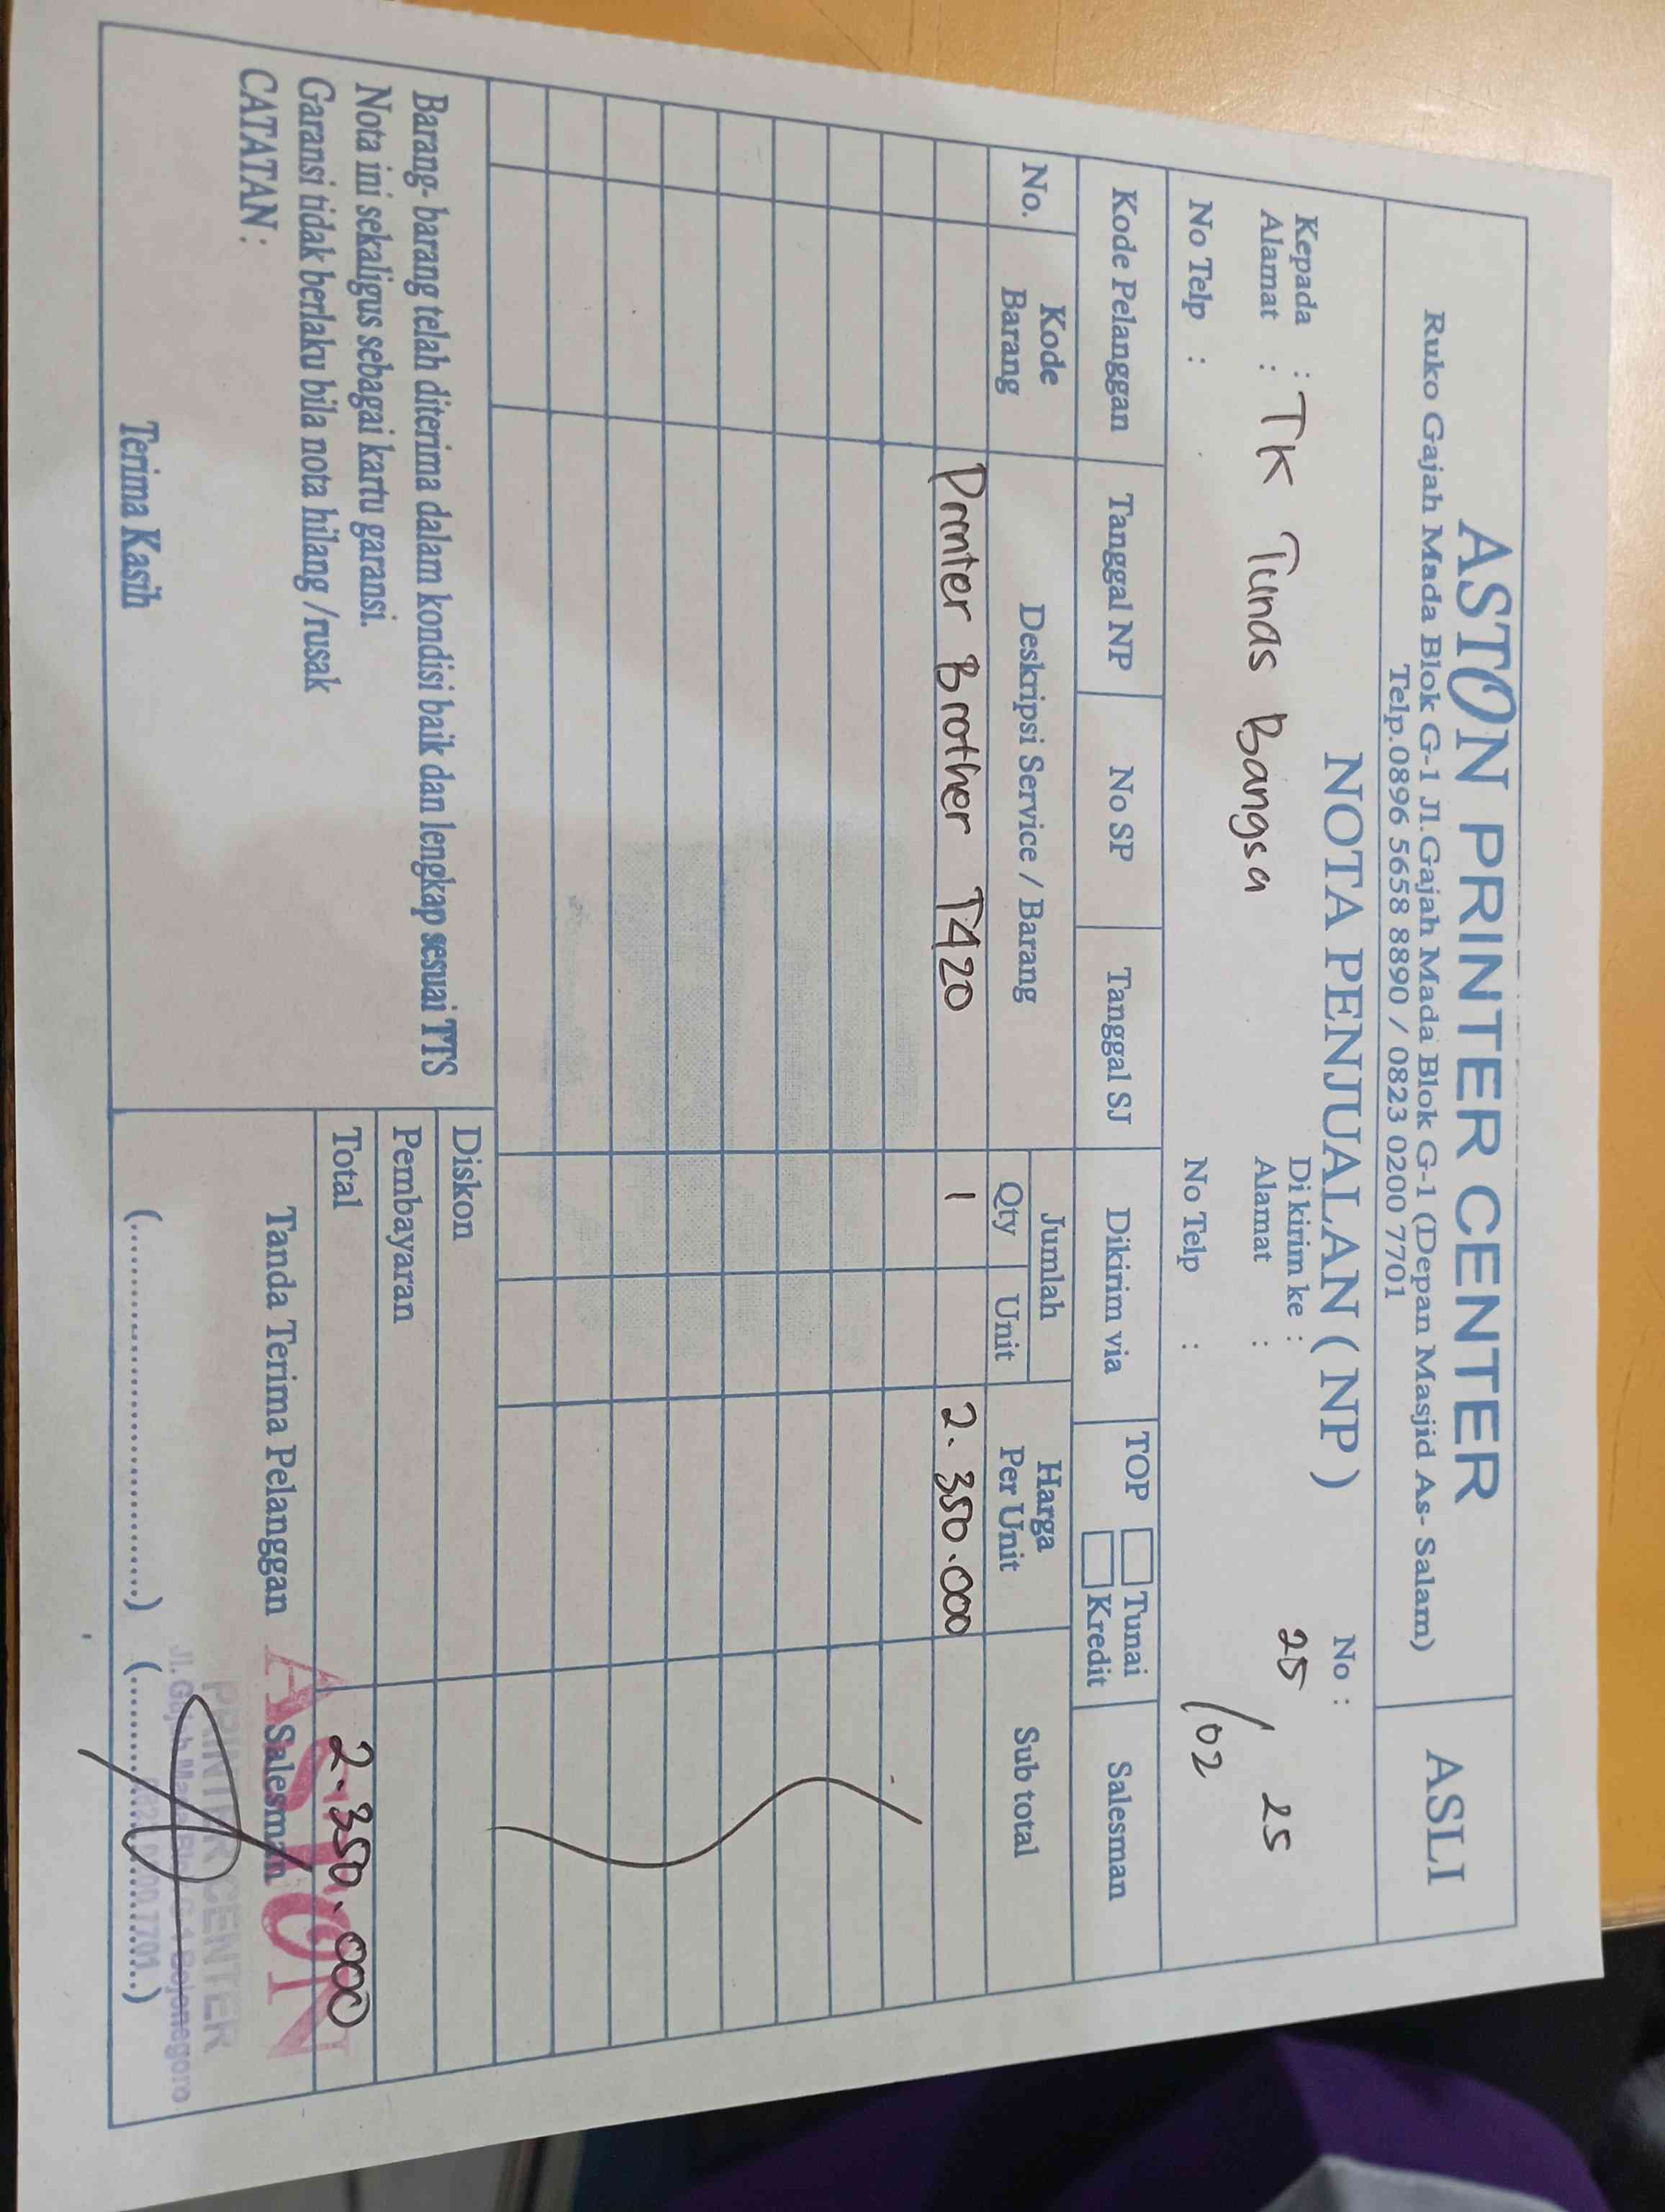 ASTON PRINTER CENTER
Ruko Gajah Mada Blok G-1 Jl.Gajah Mada Blok G-1 (Depan Masjid As- Salam)
Telp.0896 5658 8890 / 0823 0200 7701
ASLI
NOTA PENJUALAN ( NP )
No :
25/02 25
Kepada : TK Tunas Bangsa
Alamat :
No Telp :
Di kirim ke :
Alamat :
No Telp :
Kode Pelanggan Tanggal NP No SP Tanggal SJ Dikirim via TOP Tunai Kredit Salesman
No. Kode Barang Deskripsi Service / Barang Jumlah Qty Unit Harga Per Unit Sub total
Printer Brother T420 1 2.350.000
Barang- barang telah diterima dalam kondisi baik dan lengkap sesuai TTS
Nota ini sekaligus sebagai kartu garansi.
Garansi tidak berlaku bila nota hilang / rusak
CATATAN :
Terima Kasih
Diskon
Pembayaran
Total 2.350.000
Tanda Terima Pelanggan
Salesman
ASTON
PRINTER CENTER
Jl.Gajah Mada Blok G-1 Bojonegoro